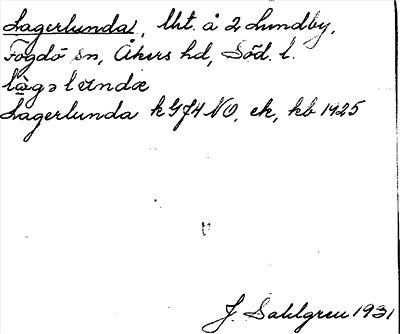 Lagerlunda, lht. å 2 Lundby,
Fogdö sn, Åkers hd, Söd. l.
Lagerlunda k GJ4 NO, ek, kb 1925
J. Sahlgren 1931